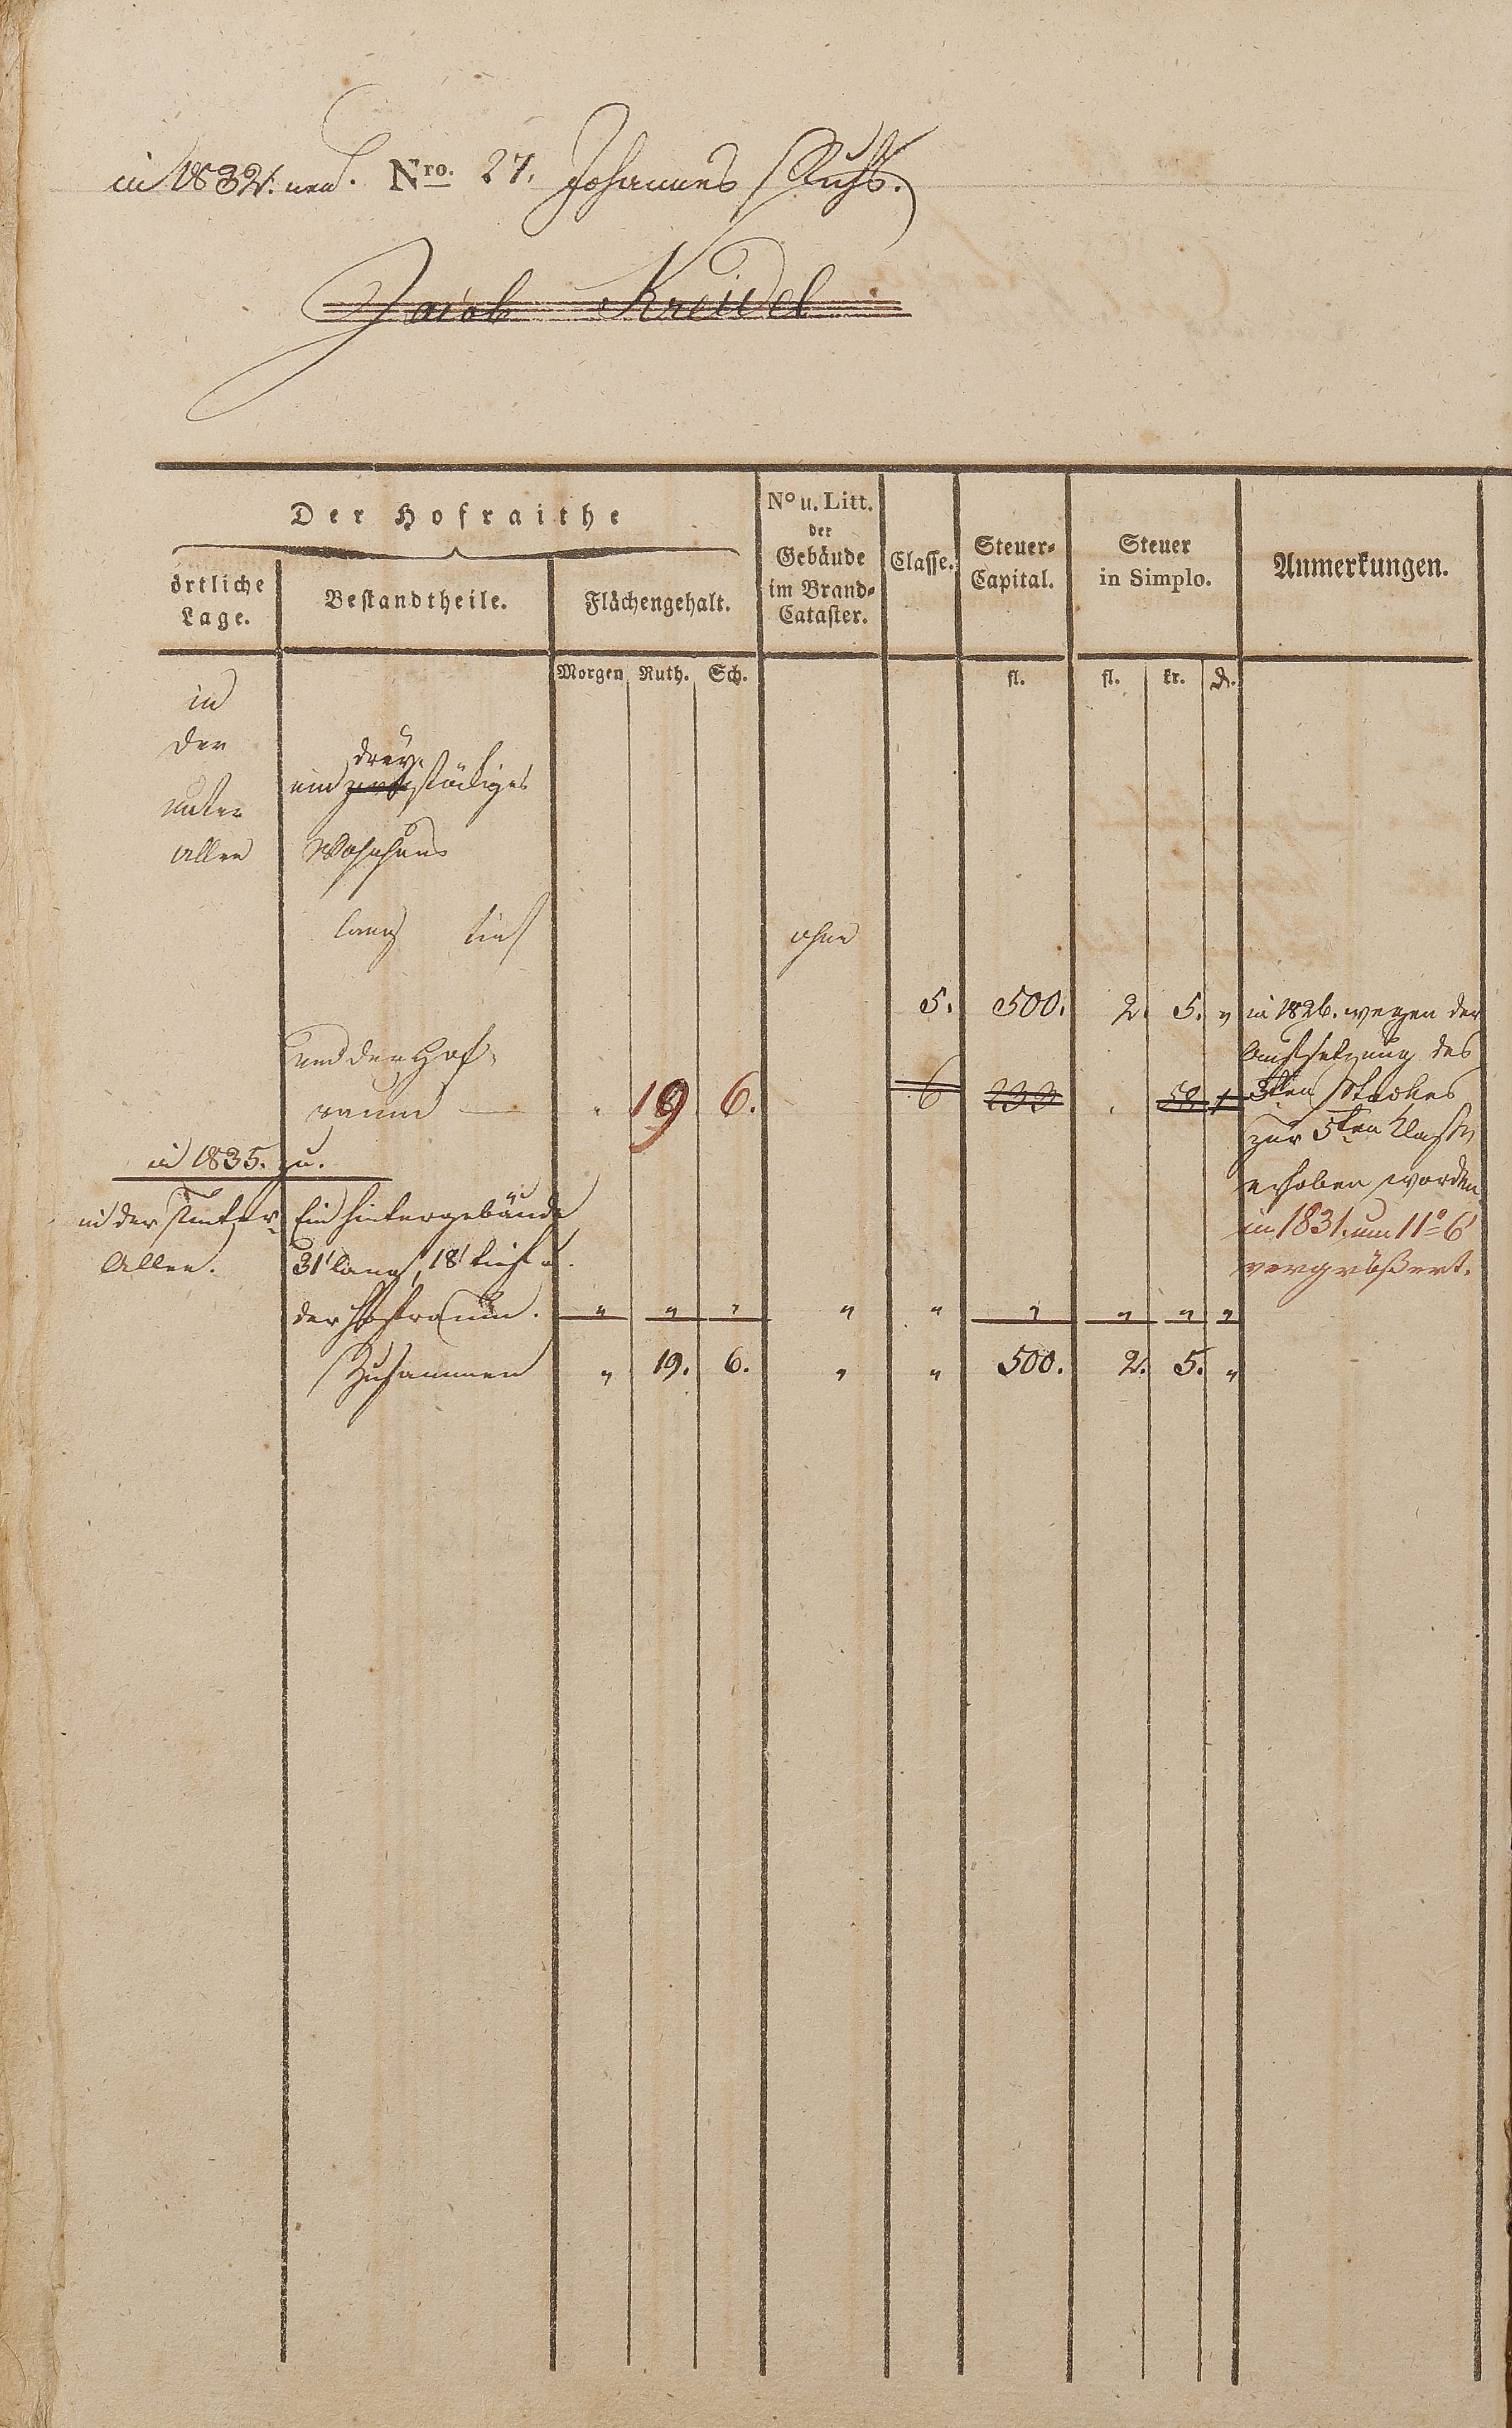 in 1832. neu. Nro. 27. Johannes Ruhs.
Jacob Kreidel
Der Hofraithe
örtliche Lage.
Bestandtheile.
Flächengehalt.
No u. Litt. der Gebäude im Brand-Cataster.
Classe.
Steuer-Capital.
Steuer in Simplo.
Anmerkungen.
Morgen Ruth. Sch. fl. fl. kr. d.
in
der
drey
ein stöckiges
unter
Allee Wohnhaus
lang tief ohne
5. 500. 2. 5. " in 1826. wegen der
Aufsetzung des
und der Hof-
raum — " 19 6. 6 233 58 1 3ten Stockes
zur 5ten Classe
in 1835. zu.
erhoben worden
in der unter- Ein Hintergebäude
in 1831. um 11° 6'
Allee. 31' lang, 18' tief u.
vergrößert.
der Hofraum. " " " " " " " " "
Zusammen " 19. 6. " " 500. 2. 5. "